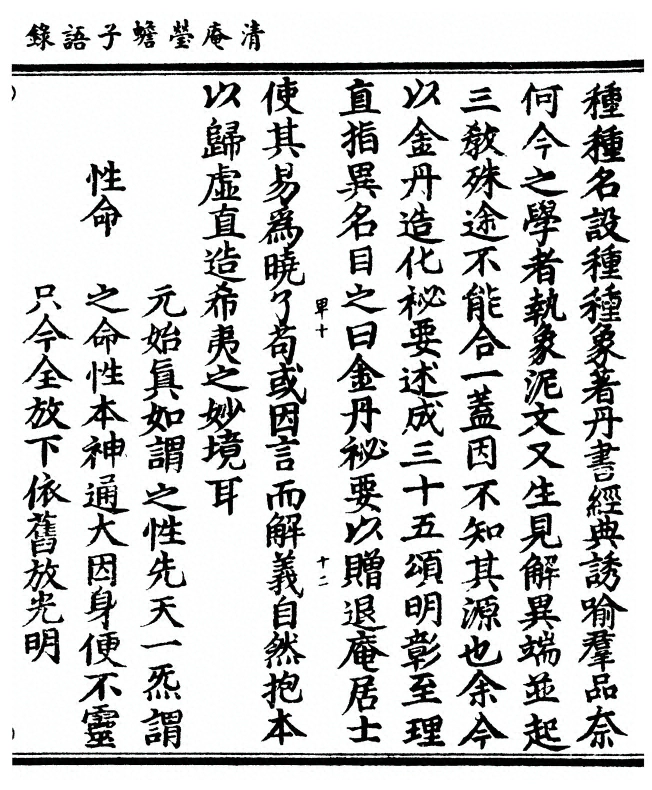 清庵瑩蟾子語錄
種種名設種種象著丹書經典誘喻羣品奈
何今之學者執象泥文又生見解異端並起
三敎殊途不能合一蓋因不知其源也余今
以金丹造化祕要述成三十五頌明彰至理
直指異名目之曰金丹祕要以贈退庵居士
使其易爲曉了苟或因言而解義自然抱本
以歸虛直造希夷之妙境耳
性命
元始眞如謂之性先天一炁謂
之命性本神通大因身便不靈
只今全放下依舊放光明
十二